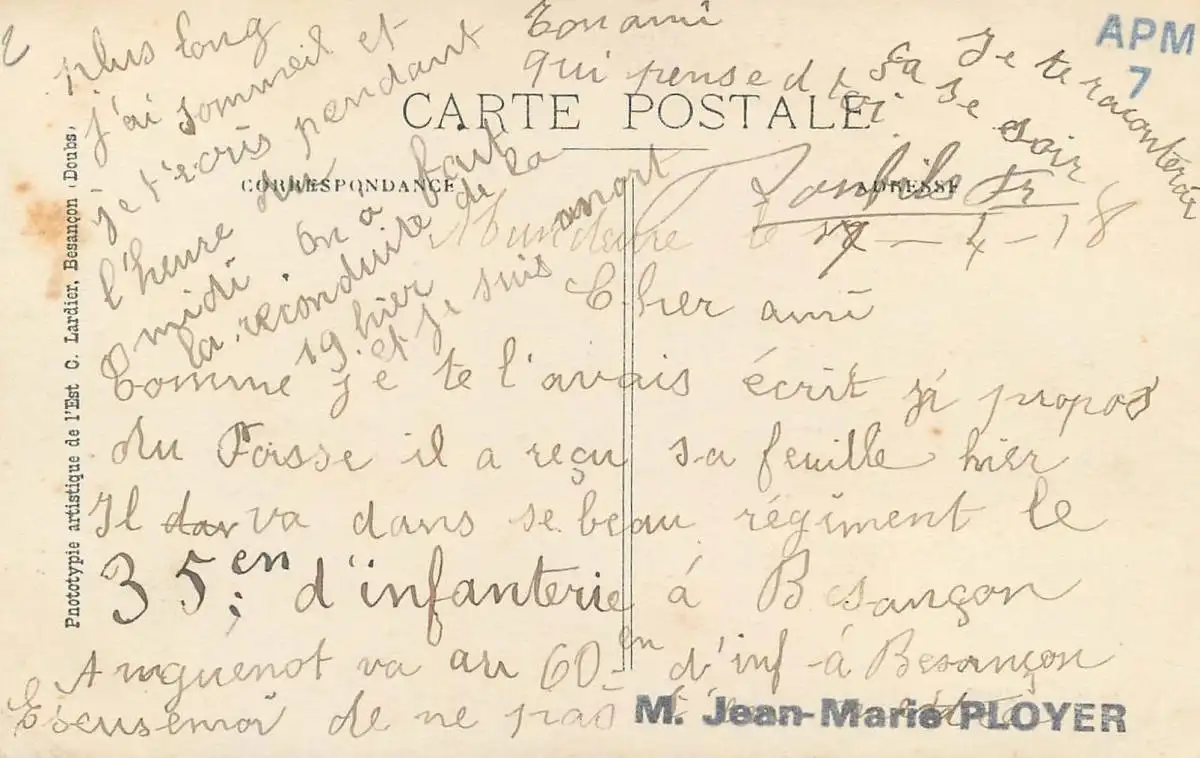 CARTE POSTALE
CORRESPONDANCE
ADRESSE
Phototypie artistique de l'Est C. Lardier, Besançon (Doubs)
APM
7
le 17-4-18
Cher ami
Comme je te l'avais écrit à propos
du Fosse il a reçu sa feuille hier
Il va dans se beau régiment le
35;en d'infanterie à Besançon
va au 60en d'inf à Besançon
Escusemoi de ne pas
M. Jean-Marie PLOYER
plus long
j'ai sommeil et
je t'ecris pendant
l'heure du
midi On a fait
la reconduite de la
19 hier
et je suis mort
Ton ami
qui pense à toi
Je te raconterai
sa se soir